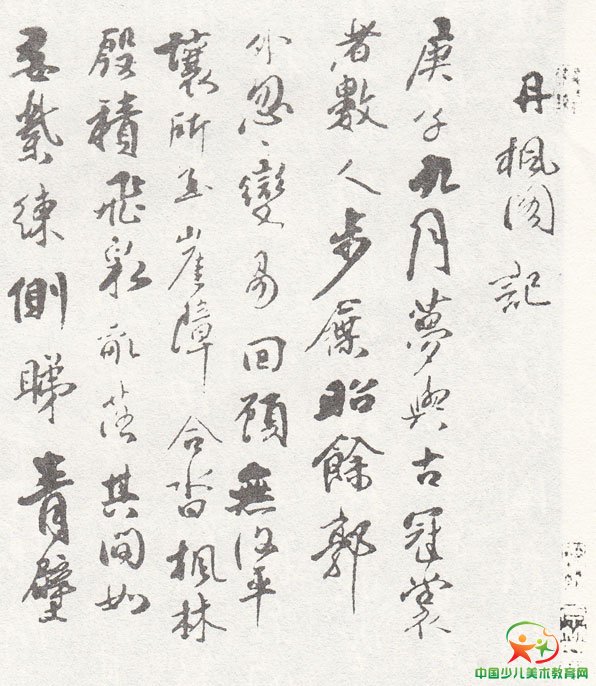 丹楓閣記
庚子九月夢與古冠裳
者數人步屧昭餘郭
外忽〻變易回顧無復平
壤所在崖嶂合沓楓林
殷積飛彩亂蕩其間如
縈練側睇青壁
中国少儿美术教育网